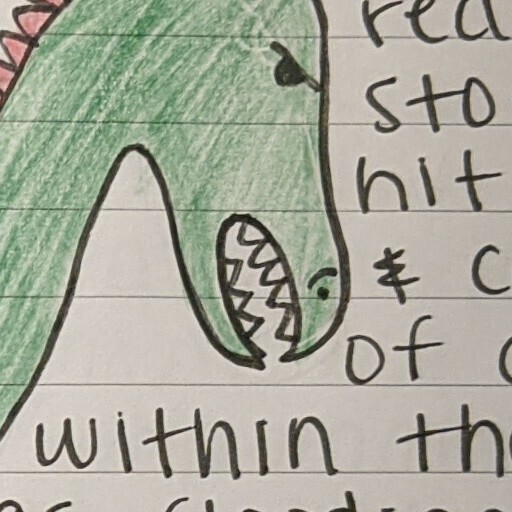 red
sto
hit
& c
of
within th